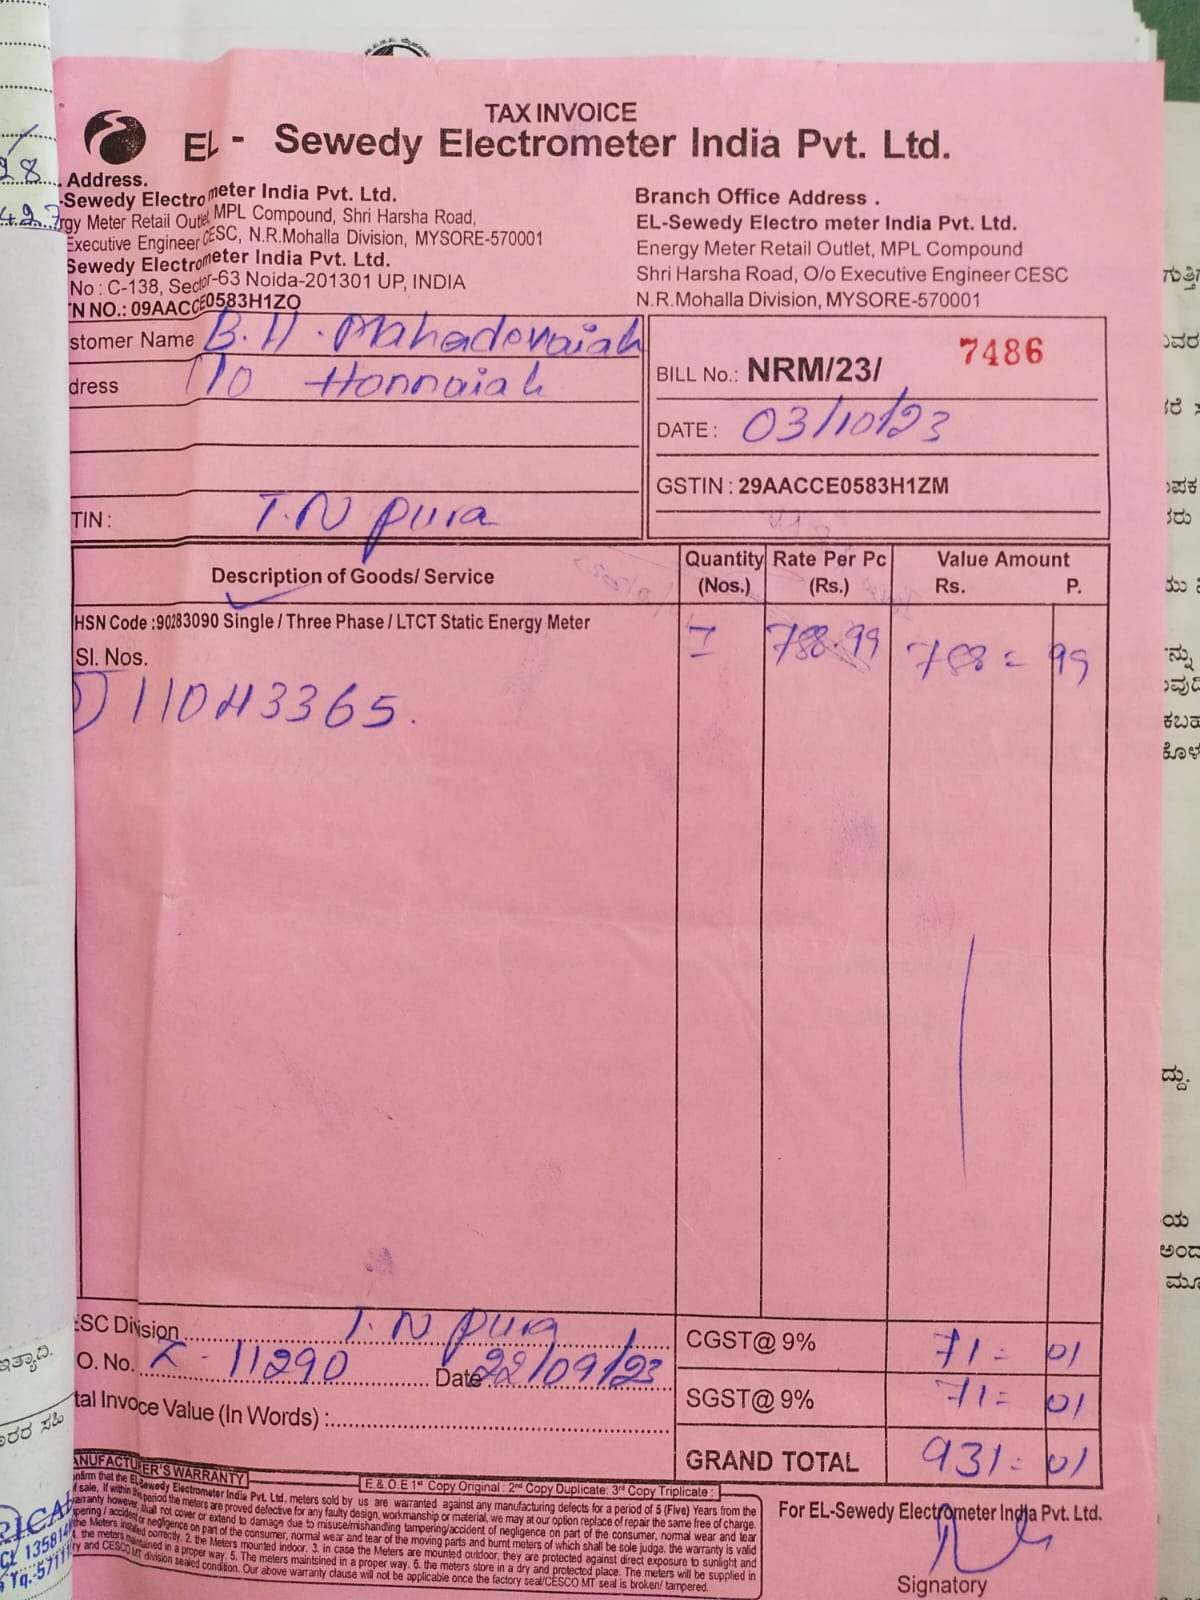 TAX INVOICE
EL - Sewedy Electrometer India Pvt. Ltd.
Address.
-Sewedy Electrometer India Pvt. Ltd.
rgy Meter Retail Outlet, MPL Compound, Shri Harsha Road,
Executive Engineer CESC, N.R.Mohalla Division, MYSORE-570001
Sewedy Electrometer India Pvt. Ltd.
No : C-138, Sector-63 Noida-201301 UP, INDIA
N NO.: 09AACCE0583H1ZO
Branch Office Address .
EL-Sewedy Electro meter India Pvt. Ltd.
Energy Meter Retail Outlet, MPL Compound
Shri Harsha Road, O/o Executive Engineer CESC
N.R.Mohalla Division, MYSORE-570001
stomer Name B.H. Mahadevaiah
dress Honnaiah
TIN : T.N pura
BILL No.: NRM/23/ 7486
DATE : 03/10/23
GSTIN : 29AACCE0583H1ZM
Description of Goods/ Service Quantity (Nos.) Rate Per Pc (Rs.) Value Amount Rs. P.
HSN Code :90283090 Single / Three Phase / LTCT Static Energy Meter 1 788.99 788 = 99
Sl. Nos.
1) 11043365.
ESC Division T. N pura
O. No. 11290 Date 22/09/23
tal Invoce Value (In Words) :
CGST@ 9% 71 = 01
SGST@ 9% 71 = 01
GRAND TOTAL 931 = 01
MANUFACTURER'S WARRANTY
E.& O.E 1st Copy Original : 2nd Copy Duplicate: 3rd Copy Triplicate :
nfirm that the EL-Sewedy Electrometer India Pvt. Ltd. meters sold by us are warranted against any manufacturing defects for a period of 5 (Five) Years from the
f sale, If within this period the meters are proved defective for any faulty design, workmanship or material, we may at our option replace of repair the same free of charge.
arranty however shall not cover or extend to damage due to misuse/mishandling tampering/accident of negligence on part of the consumer, normal wear and tear
pering / accident or negligence on part of the consumer, normal wear and tear of the moving parts and burnt meters of which shall be sole judge. the warranty is valid
the Meters installed correctly. 2. the Meters mounted indoor. 3. in case the Meters are mounted outdoor, they are protected against direct exposure to sunlight and
. the meters maintained in a proper way. 5. The meters maintsined in a proper way. 6. the meters store in a dry and protected place. The meters will be supplied in
ry and CESCO MT division sealed condition. Our above warranty clause will not be applicable once the factory seal/CESCO MT seal is broken/ tampered.
For EL-Sewedy Electrometer India Pvt. Ltd.
Signatory